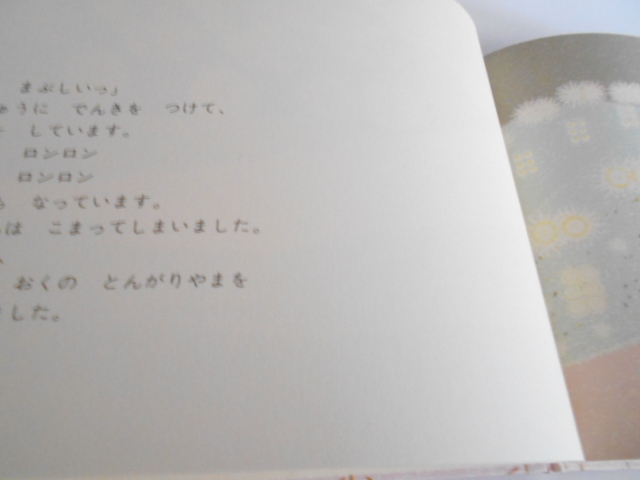 まぶしいっ」
うに　でんきを　つけて、
しています。
ロンロン
ロンロン
なっています。
は　こまってしまいました。
、
おくの　とんがりやまを
した。